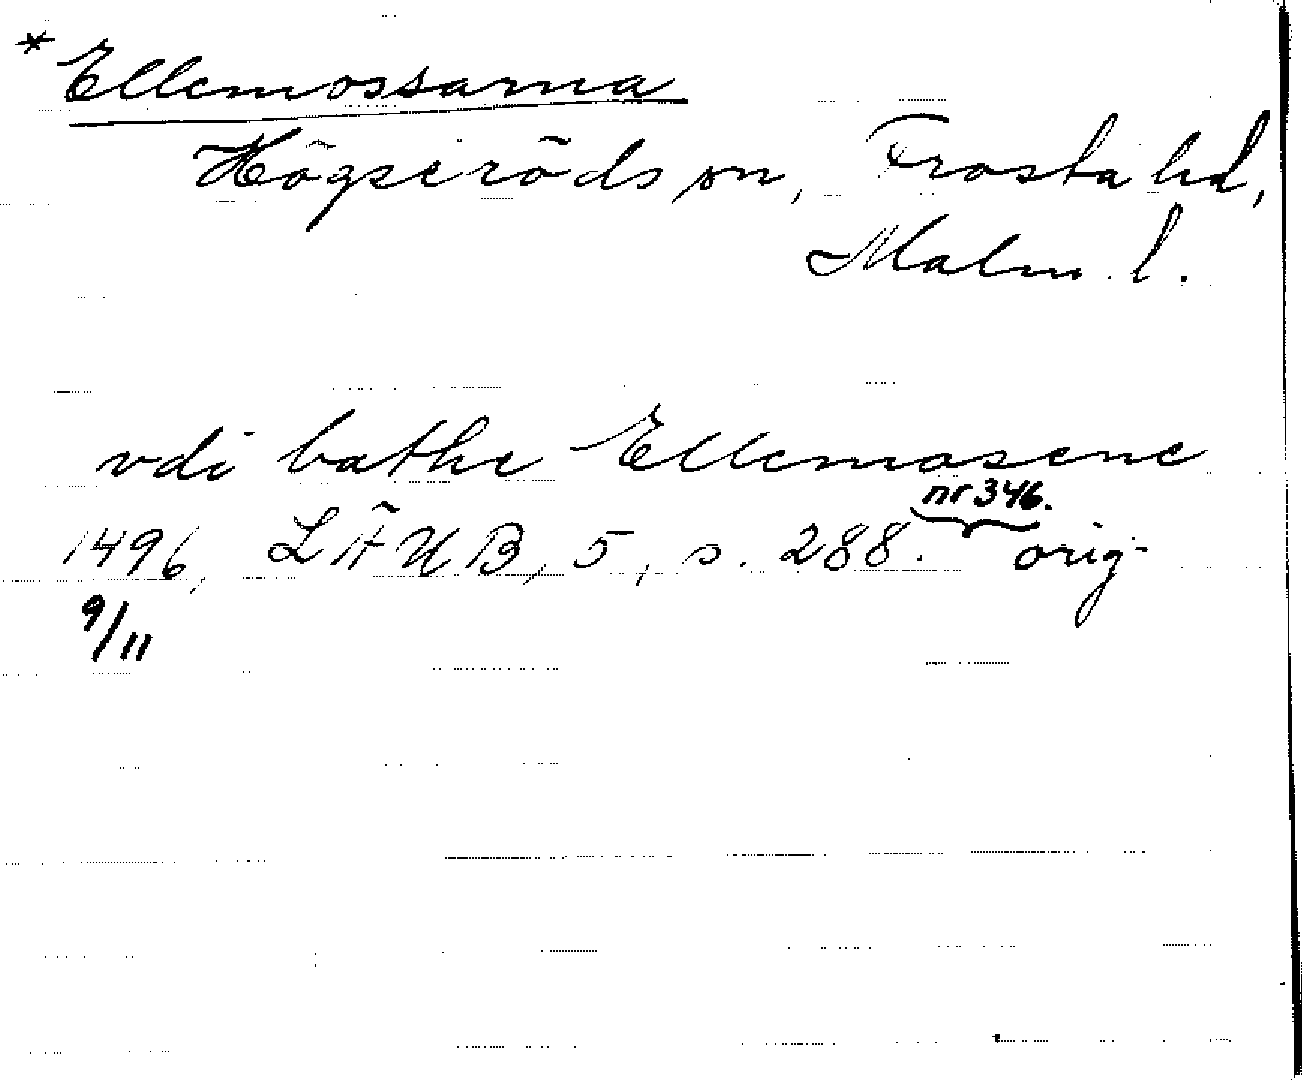 *Ellemossarna
Högseröds sn, Frosta hd,
Malm. l.
vdi bathe Ellemosene
nr 346.
1496, LÄUB, 5, s. 288. orig.
9/11